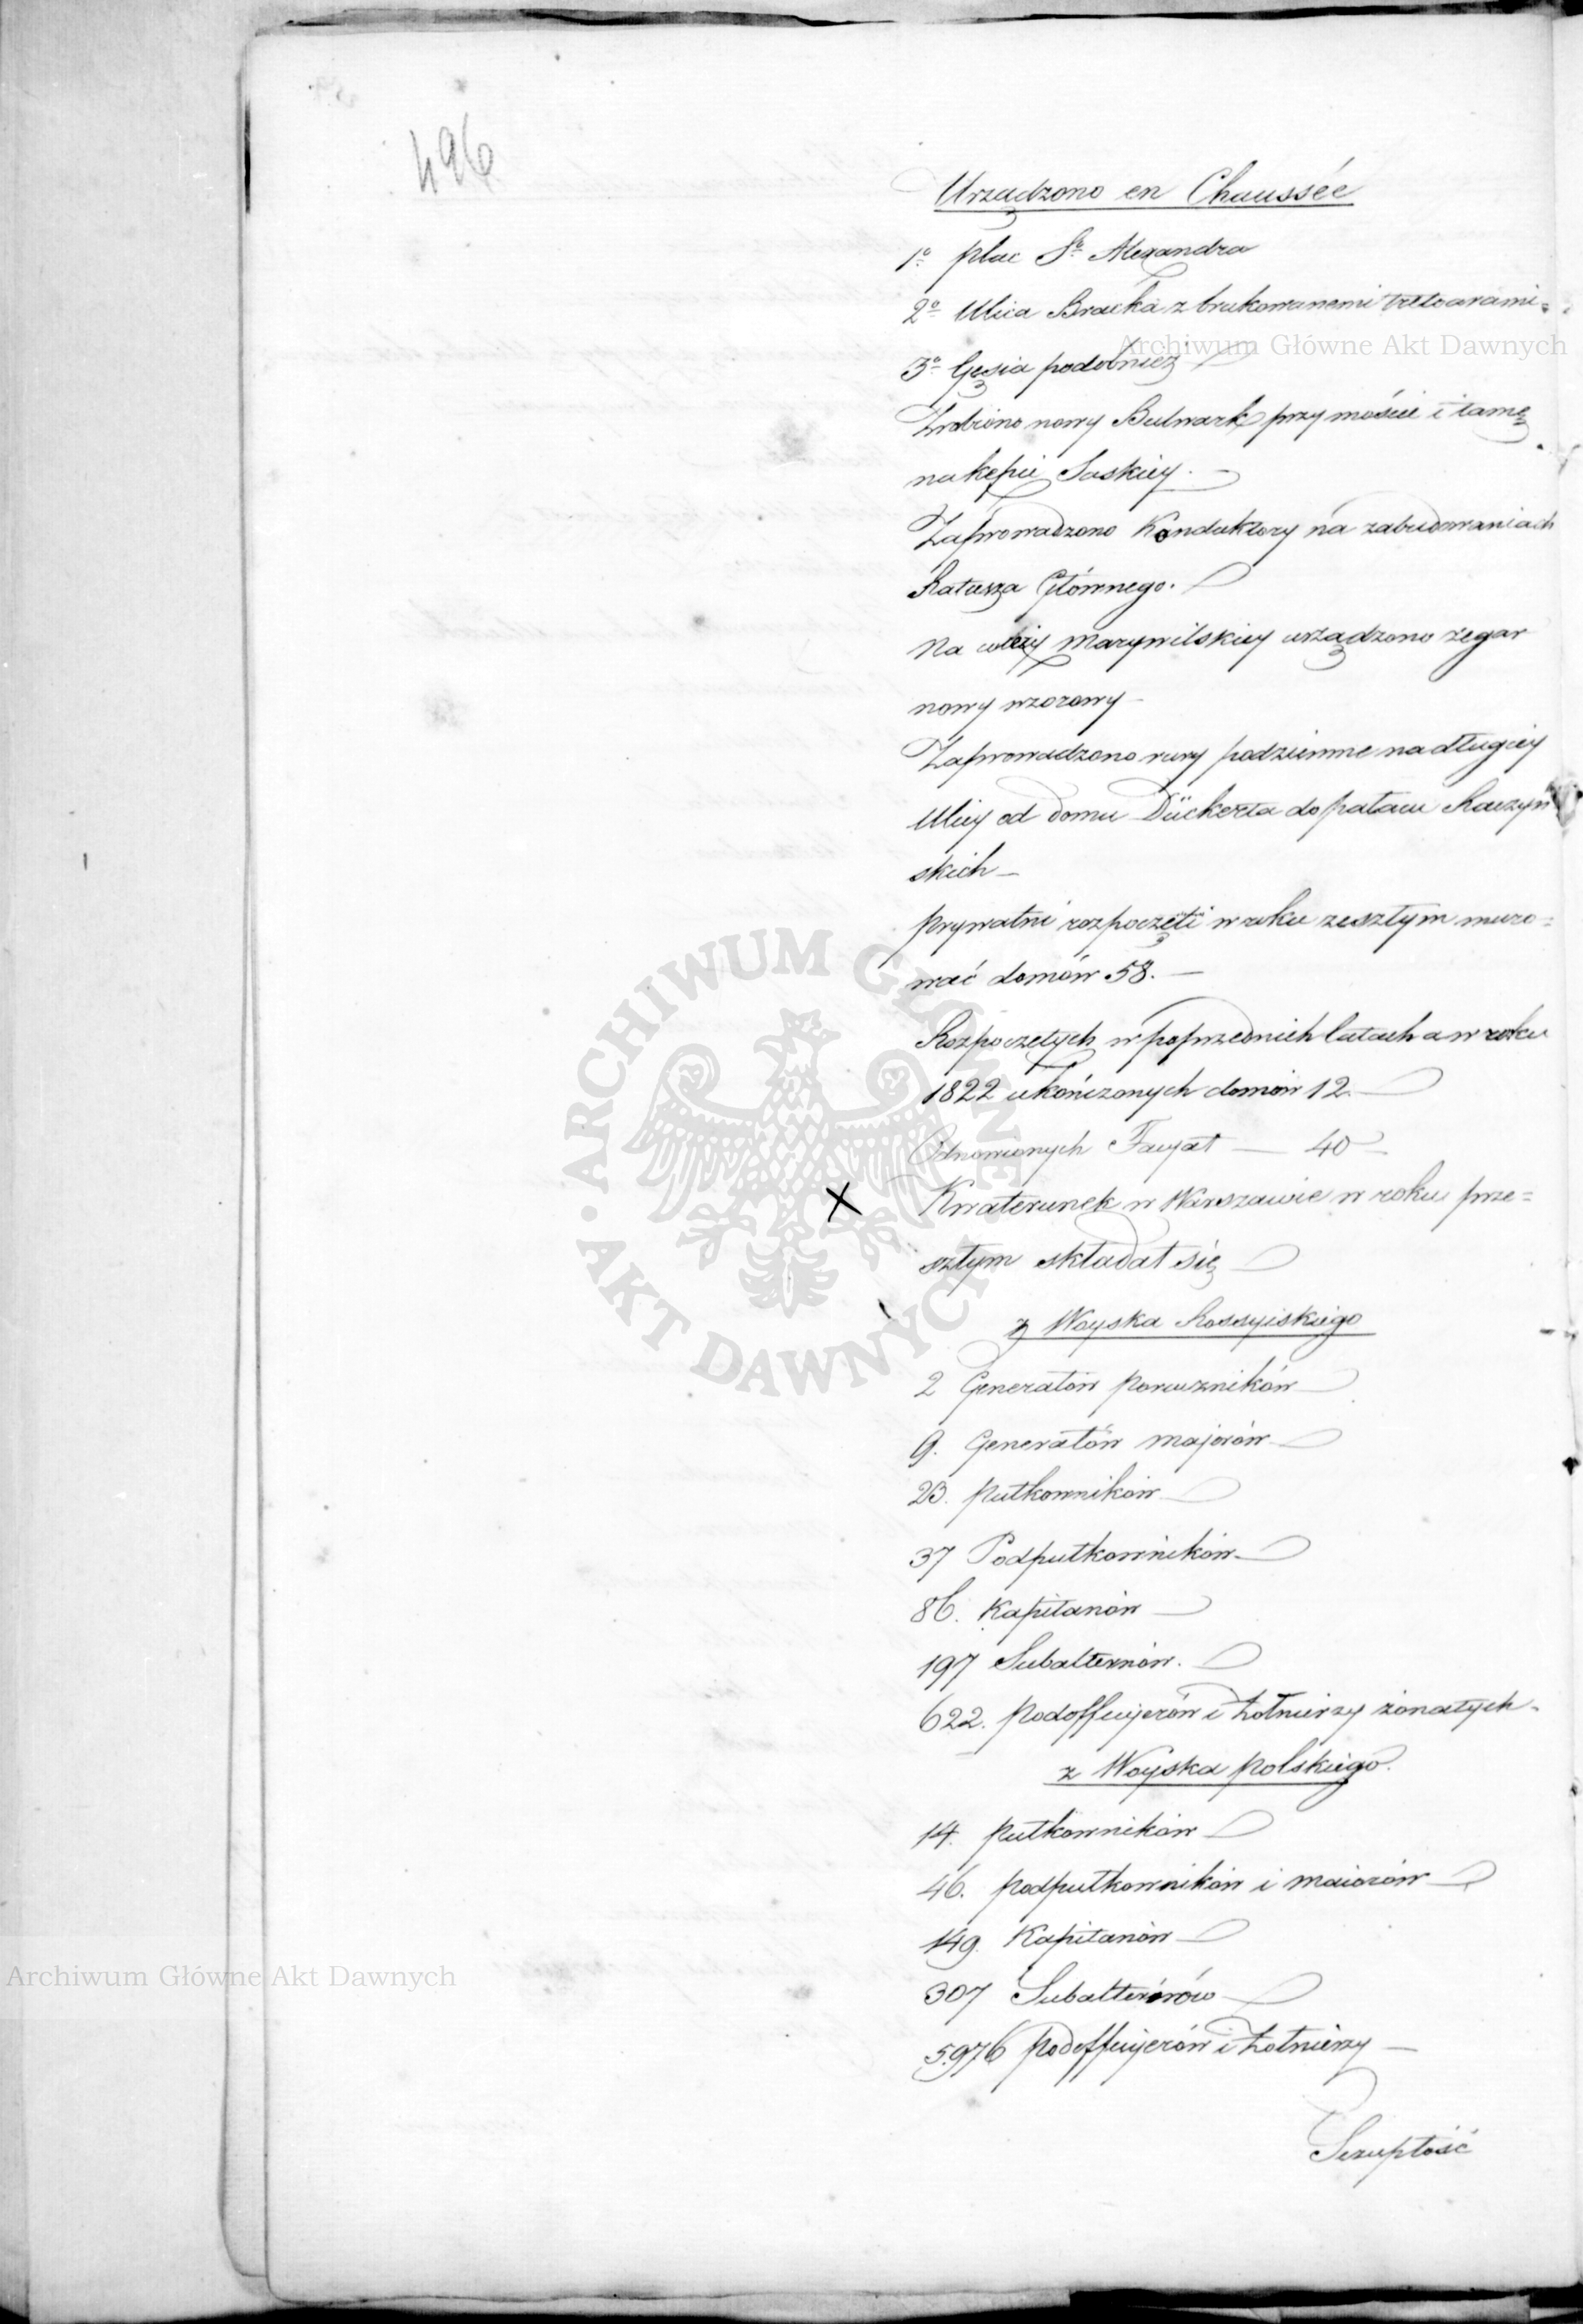 496
Urządzono en Chaussée
1º plac Sº Alexandra
2º Ulica Bracka z brukowanemi trotoarami.
3º Gęsia podobnież
Zrobiono nowy Bulwark przy moście i tamę
na kępie Saskiey.
Zaprowadzono Konduktory na zabudowaniach
Ratusza Głównego.
Na wieży Marywilskiey urządzono zegar
nowy wzorowy
Zaprowadzono rury podziemne na długiey
Ulicy od domu Dückerta do pałacu Raczyń
skich
prywatni rozpoczęti w roku zeszłym muro=
wać domów 58.
Rozpoczętych w poprzednich latach a w roku
1822 ukończonych domów 12.
Odnowionych Facyat — 40
X Kwaterunek w Warszawie w roku prze=
szłym składał się
z Woyska Rossyiskiego
2 Generałów Poruczników
9. Generałów majorów
23. Pułkowników
37 Podpułkowników
86. Kapitanów
197 Subalternów.
622. Podofficyerów i Żołnierzy żonatych.
z Woyska polskiego.
14. Pułkowników
46. podpułkowników i maiorów
149. Kapitanów
307 Subalternów
5976 Podofficyerów i Żołnierzy
Szczupłość
Archiwum Główne Akt Dawnych
Archiwum Główne Akt Dawnych
ARCHIWUM GŁÓWNE • AKT DAWNYCH •